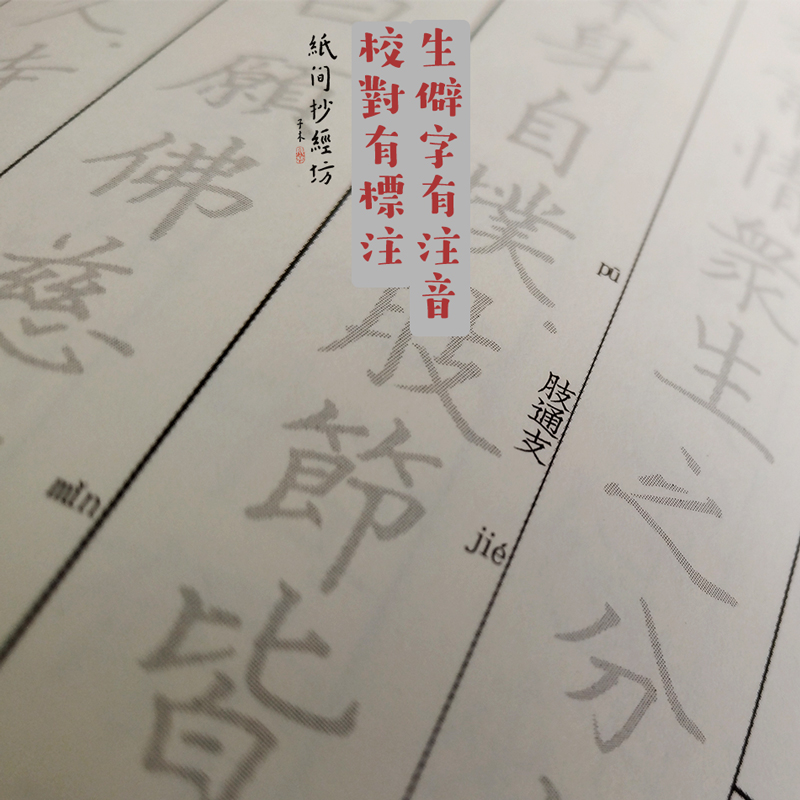 生僻字有注音
校對有標注
紙间抄經坊
子木
情衆生之分
身自撲肢節皆
pū
肢通支
jié
願佛慈
mǐn